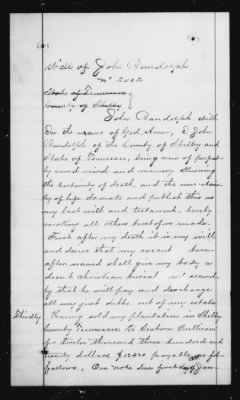 Will of John Randolph
No 2002
State of Tennessee
County of Shelby
John Randolph Will
In the name of God, Amen, I John
Randolph of the County of Shelby and
State of Tennessee, being now of perfect
by sound mind and memory knowing
the certainty of death, and the
of life do make and publish this as
my last will and testament, hereby
revoking all others heretofore made.
First after my death it is my will
and desire that my execut herein
after named shall give my body a
decent christian burial and secondly
that he will pay and discharge
all my just debts out of my estate
Thirdly Having sold my plantation in Shelby
County Tennessee to Seaborn Sullivan
for twelve thousand three hundred and
dollars payable as
follows, One note due first day Jan